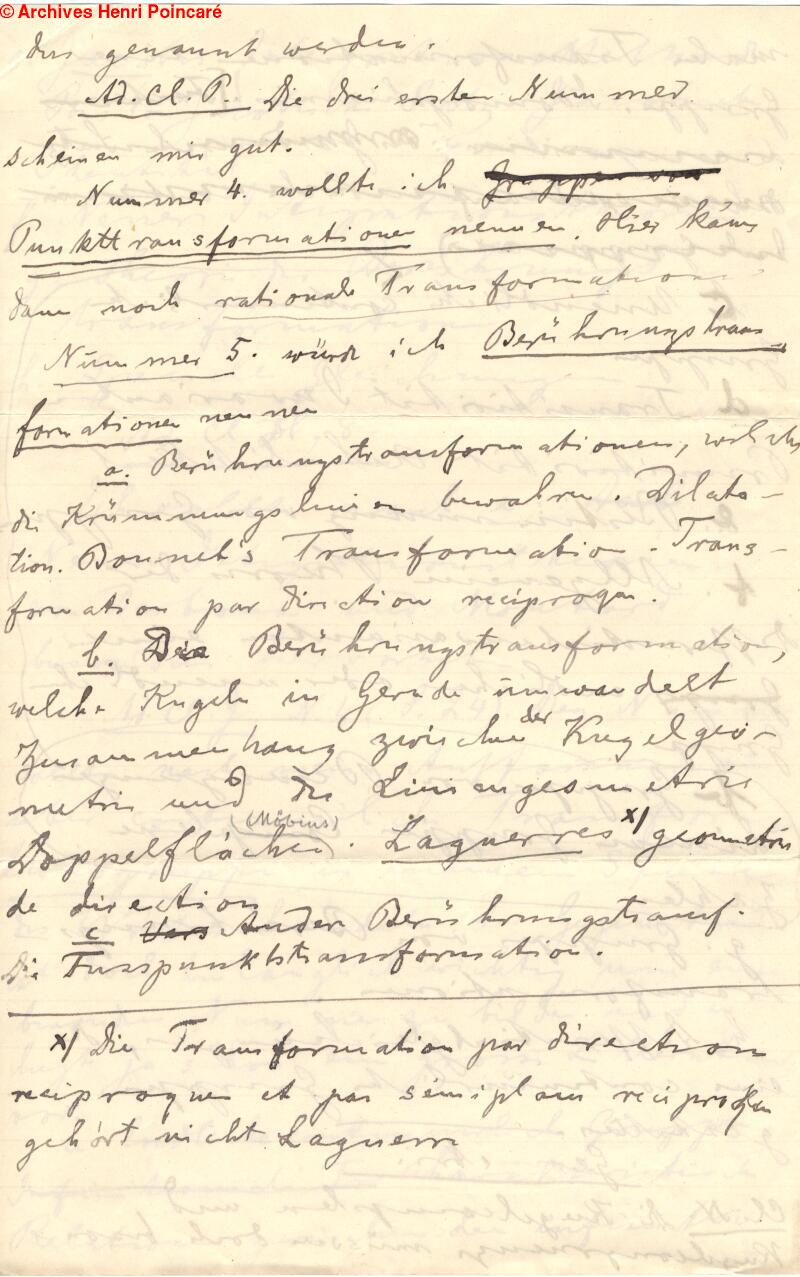 © Archives Henri Poincaré
dus genannt werden.
Ad. Cl. P. Die drei ersten Nummer
scheinen mir gut.
Nummer 4. wollte ich Gruppen von
Punkttransformationen nennen. Hier käme
dann noch rationale Transformation
Nummer 5. würde ich Berührungstrans-
formationen nennen
a. Berührungstransformationen, welche
die Krümmungslinien bewahren. Dilata-
tion. Bonnet's Transformation. Trans-
formation par direction reciproque.
b. Die Berührungstransformation,
welche Kugeln in Gerade umwandelt
Zusammenhang zwischen der Kugelgeo-
metrie und die Liniengeometrie
Doppelflächen (Möbius). Laguerres x) geometrie
de direction
c Andere Berührungstransf.
Die Fusspunktstransformation.
x) Die Transformation par direction
reciproques et par semiplans reciproques
gehört nicht Laguerre